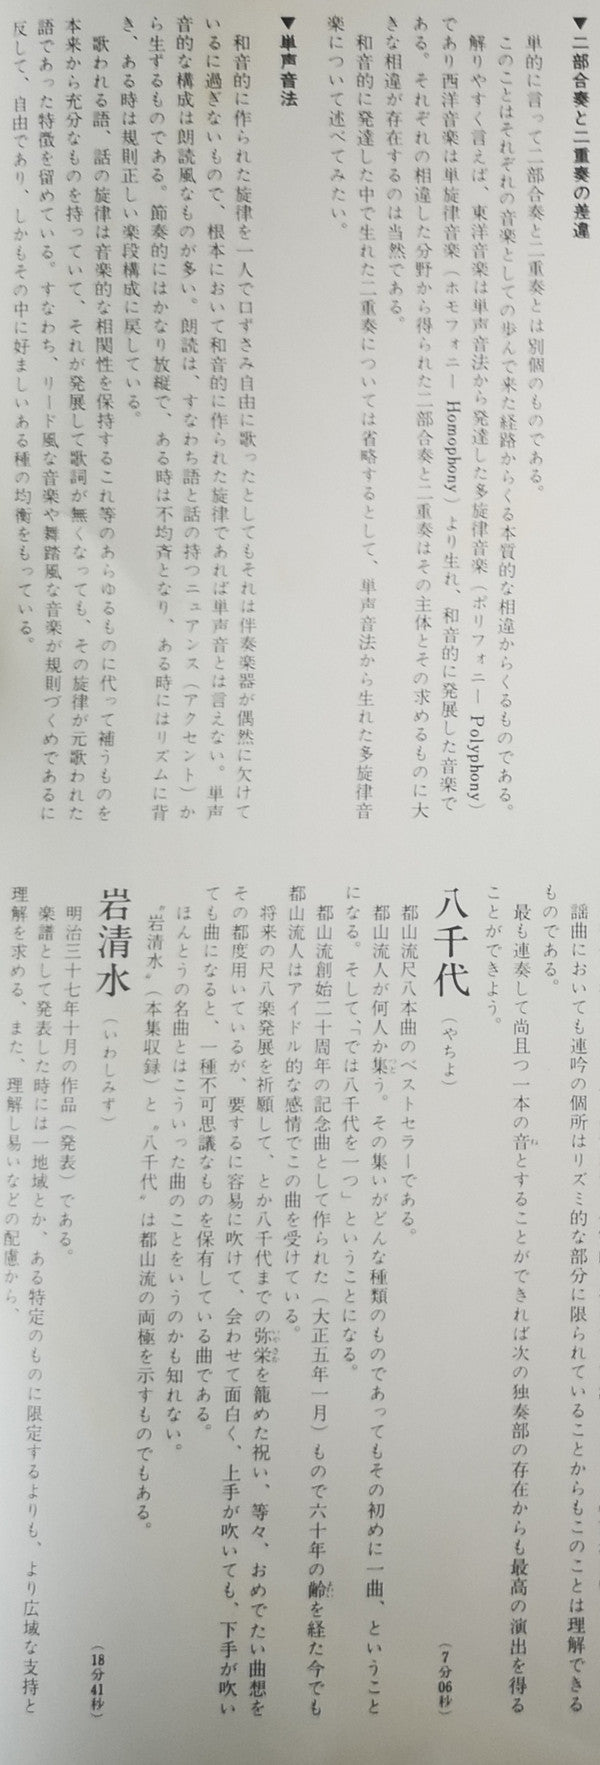 ▼二部合奏と二重奏の差違
単的に言って二部合奏と二重奏とは別個のものである。
このことはそれぞれの音楽としての歩んで来た経路からくる本質的な相違からくるものである。
解りやすく言えば、東洋音楽は単声音法から発達した多旋律音楽（ポリフォニー Polyphony）
であり西洋音楽は単旋律音楽（ホモフォニー Homophony）より生れ、和音的に発展した音楽で
ある。それぞれの相違した分野から得られた二部合奏と二重奏はその主体とその求めるものに大
きな相違が存在するのは当然である。
和音的に発達した中で生れた二重奏については省略するとして、単声音法から生れた多旋律音
楽について述べてみたい。
▼単声音法
和音的に作られた旋律を一人で口ずさみ自由に歌ったとしてもそれは伴奏楽器が偶然に欠けて
いるに過ぎないもので、根本において和音的に作られた旋律であれば単声音とは言えない。単声
音的な構成は朗読風なものが多い。朗読は、すなわち語と話の持つニュアンス（アクセント）か
ら生ずるものである。節奏的にはかなり放縦で、ある時は不均斉となり、ある時にはリズムに背
き、ある時は規則正しい楽段構成に戻している。
歌われる語、話の旋律は音楽的な相関性を保持するこれ等のあらゆるものに代って補うものを
本来から充分なものを持っていて、それが発展して歌詞が無くなっても、その旋律が元歌われた
語であった特徴を留めている。すなわち、リード風な音楽や舞踏風な音楽が規則づくめであるに
反して、自由であり、しかもその中に好ましいある種の均衡をもっている。
謡曲においても連吟の個所はリズミ的な部分に限られていることからもこのことは理解できる
ものである。
最も連奏して尚且つ一本の音とすることができれば次の独奏部の存在からも最高の演出を得る
ことができよう。
八千代（やちよ）（7分06秒）
都山流尺八本曲のベストセラーである。
都山流人が何人か集う。その集いがどんな種類のものであってもその初めに一曲、ということ
になる。そして、「では八千代を一つ」ということになる。
都山流創始二十周年の記念曲として作られた（大正五年一月）もので六十年の齢を経た今でも
都山流人はアイドル的な感情でこの曲を受けている。
将来の尺八楽発展を祈願して、とか八千代までの弥栄を籠めた祝い、等々、おめでたい曲想を
その都度用いているが、要するに容易に吹けて、会わせて面白く、上手が吹いても、下手が吹い
ても曲になると、一種不可思議なものを保有している曲である。
ほんとうの名曲とはこういった曲のことをいうのかも知れない。
〝岩清水〟（本集収録）と〝八千代〟は都山流の両極を示すものでもある。
岩清水（いわしみず）（18分41秒）
明治三十七年十月の作品（発表）である。
楽譜として発表した時には一地域とか、ある特定のものに限定するよりも、より広域な支持と
理解を求める、また、理解し易いなどの配慮から、